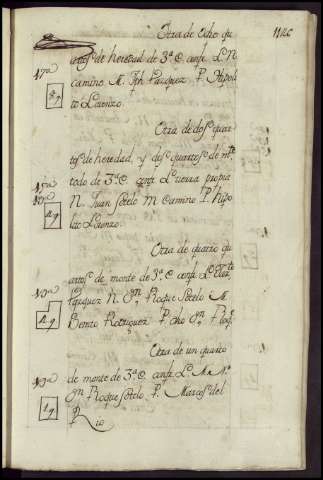 Otra de Ocho qu
artos de heredad de 3ª C. conf. L. N.
camino M. Jph Vazquez P. Hipoli
to Lorenzo.
Otra de dos quar
tos de heredad y dos quartos de mte
todo de 3ª C. conf. L. tierra propia
N. Juan Sotelo M. camino P. Hipo
lito Lorenzo.
Otra de quatro qu
artos de monte de 3ª C. conf. L.
Vazquez N. Dn Roque Sotelo M.
Benito Rodriguez P. dho Dn Roq.
Otra de un quarto
de monte de 3ª C. conf. L. M. N.
Dn Roque Sotelo P. Marcos del
Rio